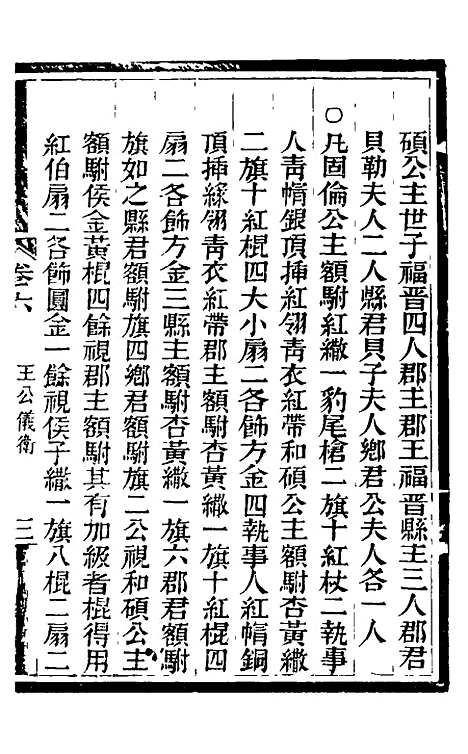 碩公主世子福晋四人郡主郡王福晋縣主三人郡君
貝勒夫人二人縣君貝子夫人鄉君公夫人各一人
○凡固倫公主額駙紅繖一豹尾槍二旗十紅杖二執事
人靑㡌銀頂揷紅翎靑衣紅帶和碩公主額駙杏黃繖
二旗十紅棍四大小扇二各飾方金四執事人紅㡌銅
頂揷綠翎靑衣紅帶郡主額駙杏黃繖一旗十紅棍四
扇二各飾方金三縣主額駙杏黃繖一旗六郡君額駙
旗如之縣君額駙旗四鄉君額駙旗二公視和碩公主
額駙侯金黃棍四餘視郡主額駙其有加級者棍得用
紅伯扇二各飾圓金一餘視侯子繖一旗八棍二扇二
卷六
王公儀衛
三